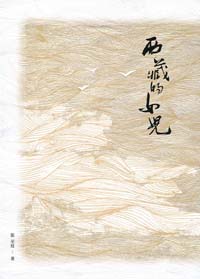 西藏的女兒